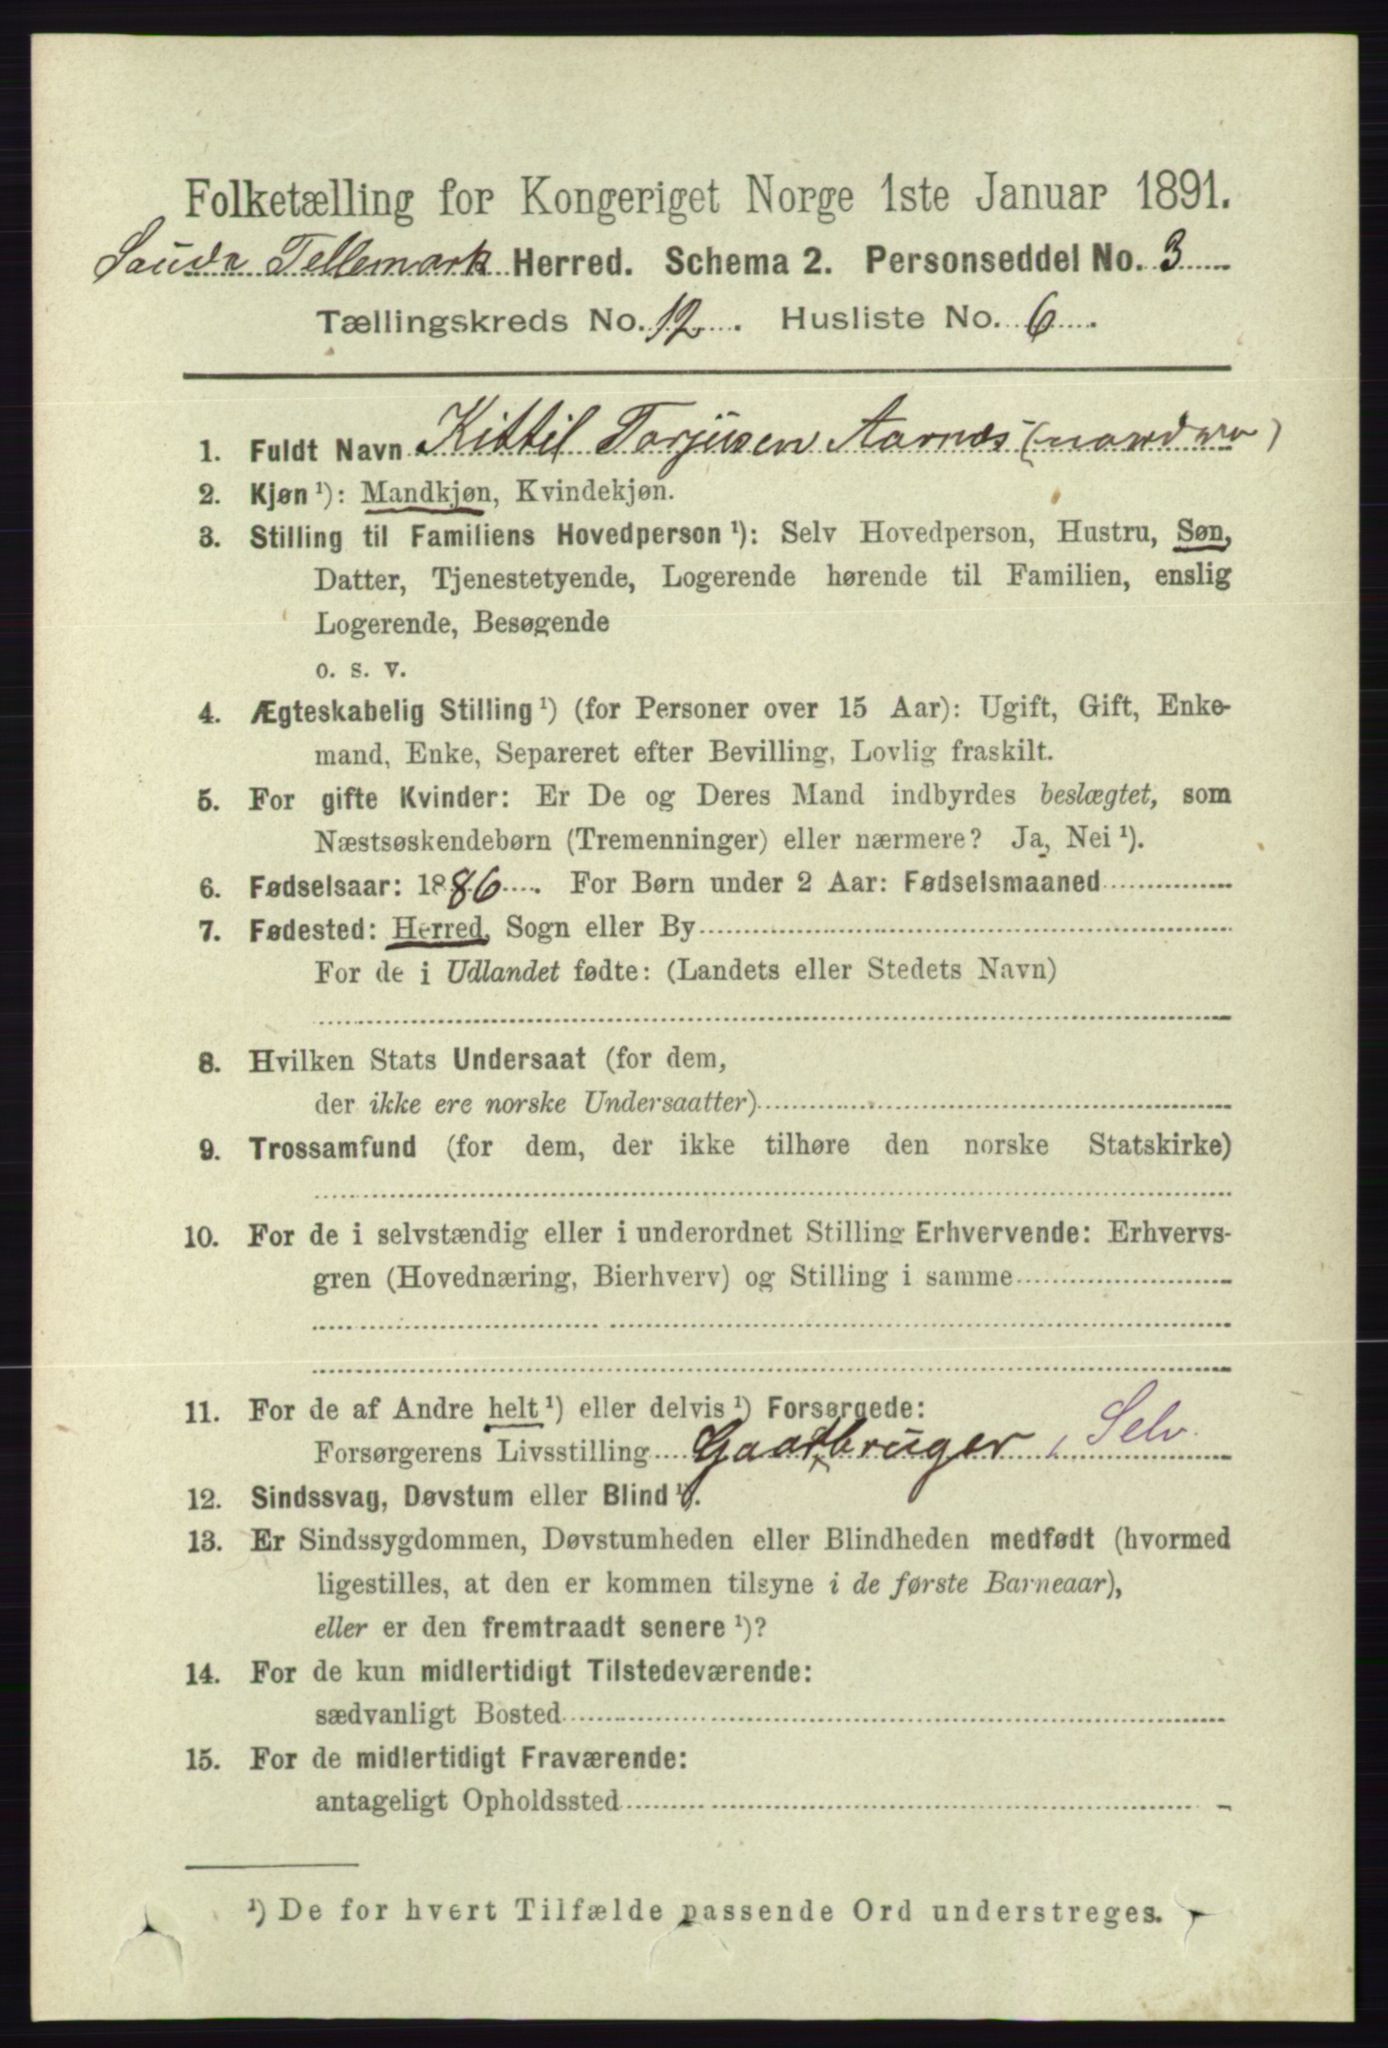 Folketælling for Kongeriget Norge 1ste Januar 1891.
Saude Tellemark Herred. Schema 2. Personseddel No. 3
Tællingskreds No. 12. Husliste No. 6.
1. Fuldt Navn Kittil Torjusen Aarnæs (nordre)
2. Kjøn ¹): Mandkjøn, Kvindekjøn.
3. Stilling til Familiens Hovedperson ¹): Selv Hovedperson, Hustru, Søn,
Datter, Tjenestetyende, Logerende hørende til Familien, enslig
Logerende, Besøgende
o. s. v.
4. Ægteskabelig Stilling ¹) (for Personer over 15 Aar): Ugift, Gift, Enke-
mand, Enke, Separeret efter Bevilling, Lovlig fraskilt.
5. For gifte Kvinder: Er De og Deres Mand indbyrdes beslægtet, som
Næstsøskendebørn (Tremenninger) eller nærmere? Ja, Nei ¹).
6. Fødselsaar: 1886. For Børn under 2 Aar: Fødselsmaaned
7. Fødested: Herred, Sogn eller By
For de i Udlandet fødte: (Landets eller Stedets Navn)
8. Hvilken Stats Undersaat (for dem,
der ikke ere norske Undersaatter)
9. Trossamfund (for dem, der ikke tilhøre den norske Statskirke)
10. For de i selvstændig eller i underordnet Stilling Erhvervende: Erhvervs-
gren (Hovednæring, Bierhverv) og Stilling i samme
11. For de af Andre helt ¹) eller delvis ¹) Forsørgede:
Forsørgerens Livsstilling Gaardbruger, Selv.
12. Sindssvag, Døvstum eller Blind ¹).
13. Er Sindssygdommen, Døvstumheden eller Blindheden medfødt (hvormed
ligestilles, at den er kommen tilsyne i de første Barneaar),
eller er den fremtraadt senere ¹)?
14. For de kun midlertidigt Tilstedeværende:
sædvanligt Bosted
15. For de midlertidigt Fraværende:
antageligt Opholdssted
¹) De for hvert Tilfælde passende Ord understreges.